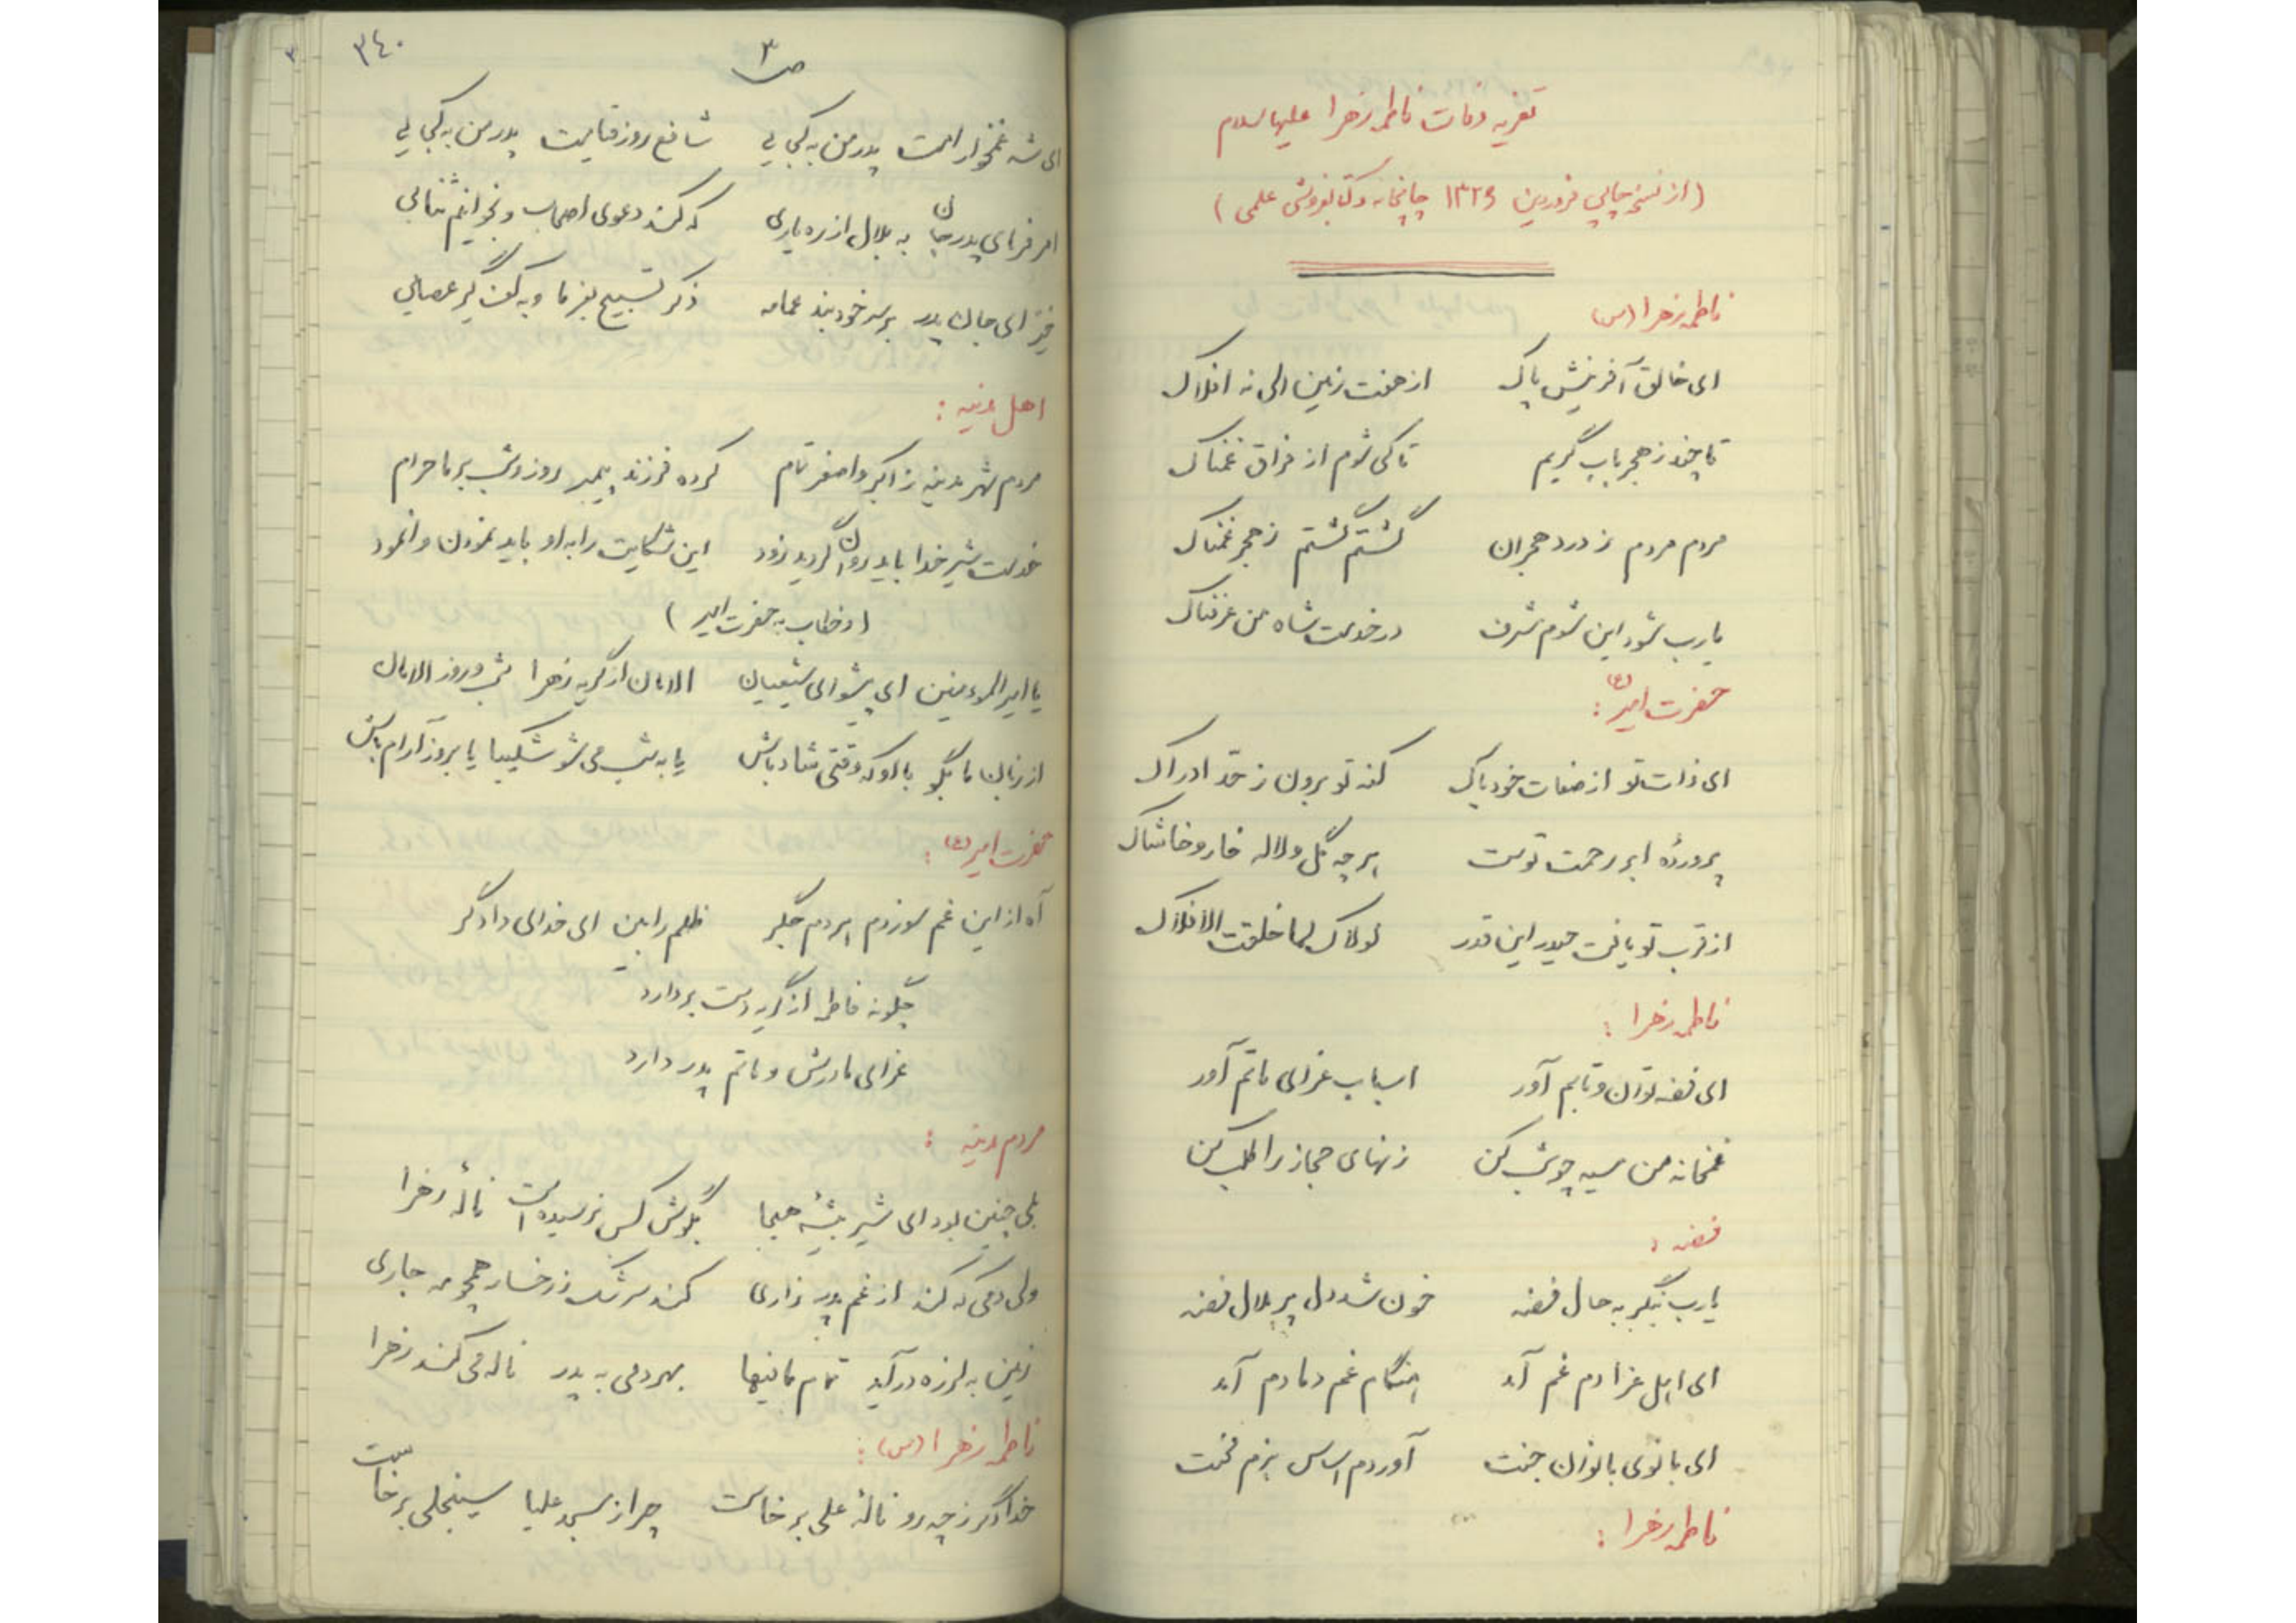 تعزیه وفات فاطمه زهرا علیها سلام
(از نسخه چاپی فروردین ۱۳۲۶ چاپخانه و کتابفروشی علمی)
فاطمه زهرا (س)
ای خالق آفرینش پاک از هفت زمین الی نه افلاک
تا چند ز هجر باب گریم تا کی شوم از فراق غمناک
مردم مردم ز درد هجران گشتم گشتم ز هجر غمناک
یارب شود این شوم شرف در خدمت شاه من عرفناک
حضرت امیر (ع):
ای ذات تو از صفات خود پاک کنه تو برون ز حد ادراک
پروردهٔ ابر رحمت توست هر چه گل و لاله خار و خاشاک
از قرب تو یافت حیدر این قدر لولاک لما خلقت الافلاک
فاطمه زهرا:
ای فضه توان و تابم آور اسباب عزای ماتم آور
غمخانه من سیه چو شب کن زنهای حجاز را طلب کن
فضه:
یارب بنگر به حال فضه خون شد دل پر ملال فضه
ای اهل عزا دم غم آمد هنگام غم دمادم آمد
ای بانوی بانوان جنت آوردم اساس بزم محنت
فاطمه زهرا:
۳۴۰
ص ۳
ای شه غمخوار امت پدر من به کجایی شافع روز قیامت پدر من به کجایی
امر فرمای پدر جان به بلال از ره یاری که کند دعوی اصحاب و بخوانیم ثنایی
خیز ای جان پدر بر سر خود بند عمامه ذکر تسبیح بفرما و به کف گیر عصایی
اهل مدینه:
مردم شهر مدینه ز اکبر و اصغر تمام کرده فرزند پیمبر روز و شب بر ما حرام
خدمت شیر خدا باید روان گردید زود این شکایت را به او باید نمودن وانمود
(و خطاب به حضرت امیر)
یا امیرالمؤمنین ای پیشوای شیعیان الامان از گریه زهرا شب و روز الامان
از زبان ما بگو با او که وقتی شاد باش یا به شب می شو شکیبا یا بروز آرام باش
حضرت امیر (ع):
آه از این غم سوزدم هر دم جگر ظلم را بین ای خدای دادگر
چگونه فاطمه از گریه دست بردارد
عزای مادرش و ماتم پدر دارد
مردم مدینه:
بلی چنین بود ای شیر بیشهٔ هیجا بگوش کس نرسیده است نالهٔ زهرا
ولی دمی که کند از غم پدر زاری کند سرشک ز رخسار همچو مه جاری
زمین به لرزه درآید تمام مافیها بهر دمی به پدر ناله می کند زهرا
فاطمه زهرا (س):
خدا دگر ز چه رو نالهٔ علی برخاست چرا ز مسجد علیا سینجلی برخاست